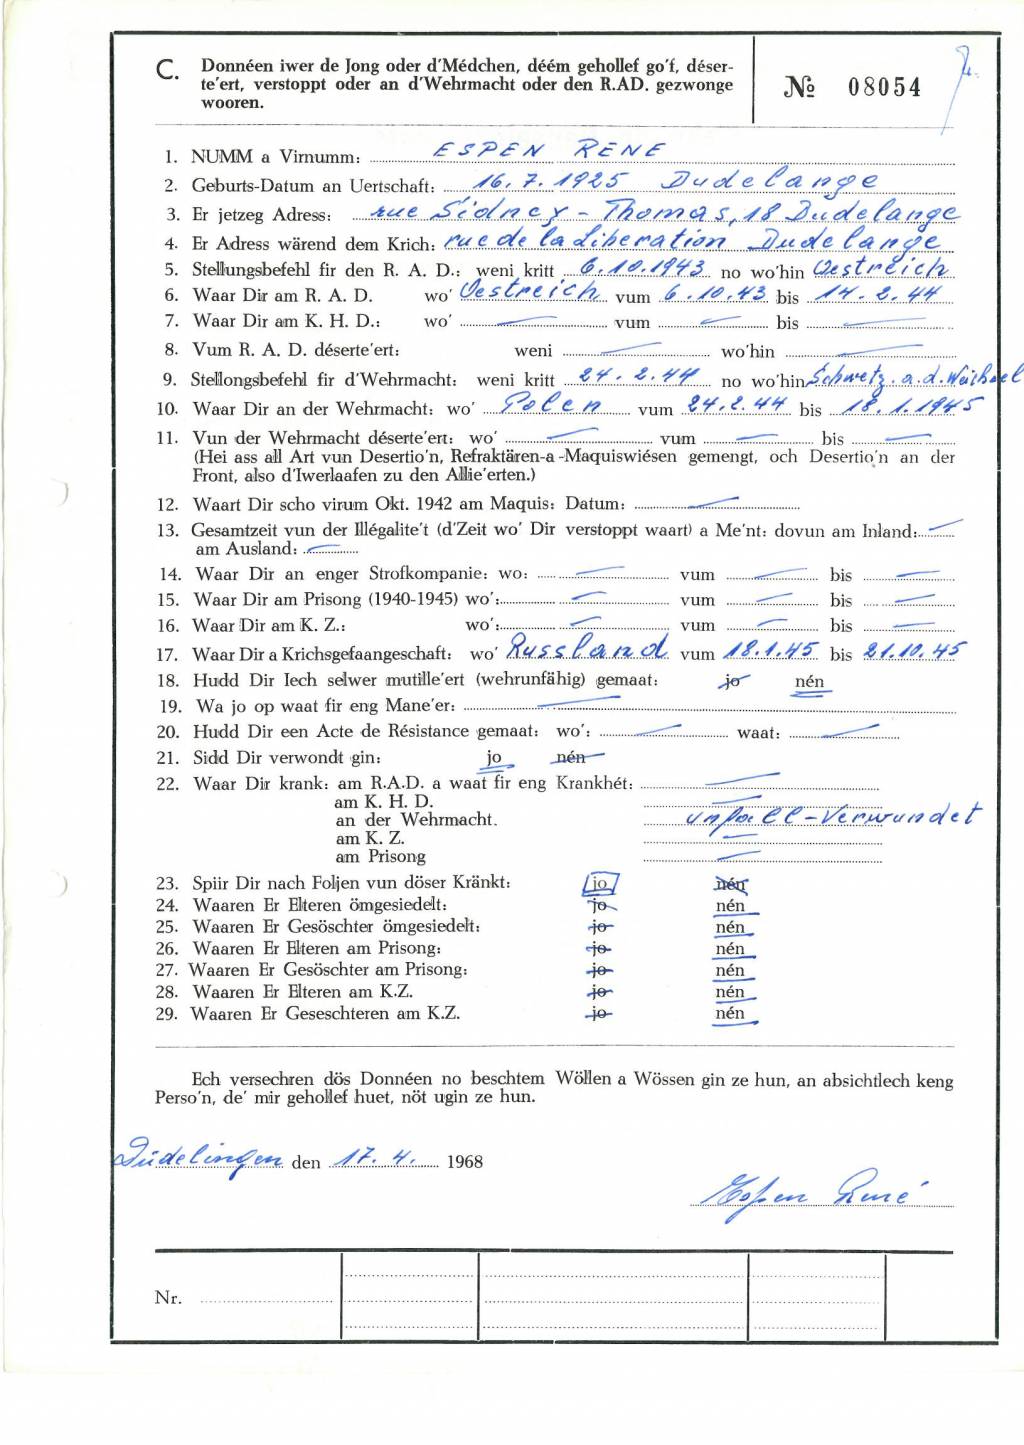 C. Donnéen iwer de Jong oder d'Médchen, déém gehollef go'f, déser-
te'ert, verstoppt oder an d'Wehrmacht oder den R.AD. gezwonge
wooren.
№ 08054
1. NUMM a Virnumm: ESPEN RENE
2. Geburts-Datum an Uertschaft: 16.7.1925 Dudelange
3. Er jetzeg Adress: rue Sidney-Thomas, 18 Dudelange
4. Er Adress wärend dem Krich: rue de la Liberation Dudelange
5. Stellungsbefehl fir den R. A. D.: weni kritt 6.10.1943 no wo'hin Oestreich
6. Waar Dir am R. A. D. wo' Oestreich vum 6.10.43 bis 14.2.44
7. Waar Dir am K. H. D.: wo' — vum — bis —
8. Vum R. A. D. déserte'ert: weni — wo'hin —
9. Stellongsbefehl fir d'Wehrmacht: weni kritt 24.2.44 no wo'hin Schwetz. a.d. Weichsel
10. Waar Dir an der Wehrmacht: wo' Polen vum 24.2.44 bis 18.1.1945
11. Vun der Wehrmacht déserte'ert: wo' — vum — bis —
(Hei ass all Art vun Desertio'n, Refraktären-a-Maquiswiésen gemengt, och Desertio'n an der
Front, also d'Iwerlaafen zu den Allie'erten.)
12. Waart Dir scho virum Okt. 1942 am Maquis: Datum: —
13. Gesamtzeit vun der Illégalite't (d'Zeit wo' Dir verstoppt waart) a Me'nt: dovun am Inland: —
am Ausland: —
14. Waar Dir an enger Strofkompanie: wo: — vum — bis —
15. Waar Dir am Prisong (1940-1945) wo': — vum — bis —
16. Waar Dir am K. Z.: wo': — vum — bis —
17. Waar Dir a Krichsgefaangeschaft: wo' Russland vum 18.1.45 bis 21.10.45
18. Hudd Dir Iech selwer mutille'ert (wehrunfähig) gemaat: jo nén
19. Wa jo op waat fir eng Mane'er: —
20. Hudd Dir een Acte de Résistance gemaat: wo': — waat: —
21. Sidd Dir verwondt gin: jo nén
22. Waar Dir krank: am R.A.D. a waat fir eng Krankhét: —
am K. H. D. —
an der Wehrmacht. unfall-Verwundet
am K. Z. —
am Prisong —
23. Spiir Dir nach Foljen vun döser Kränkt: jo nén
24. Waaren Er Elteren ömgesiedelt: jo nén
25. Waaren Er Gesöschter ömgesiedelt: jo nén
26. Waaren Er Elteren am Prisong: jo nén
27. Waaren Er Gesöschter am Prisong: jo nén
28. Waaren Er Elteren am K.Z. jo nén
29. Waaren Er Geseschteren am K.Z. jo nén
Ech versechren dös Donnéen no beschtem Wöllen a Wössen gin ze hun, an absichtlech keng
Perso'n, de' mir gehollef huet, nöt ugin ze hun.
Düdelingen den 17. 4. 1968
Espen René
Nr.